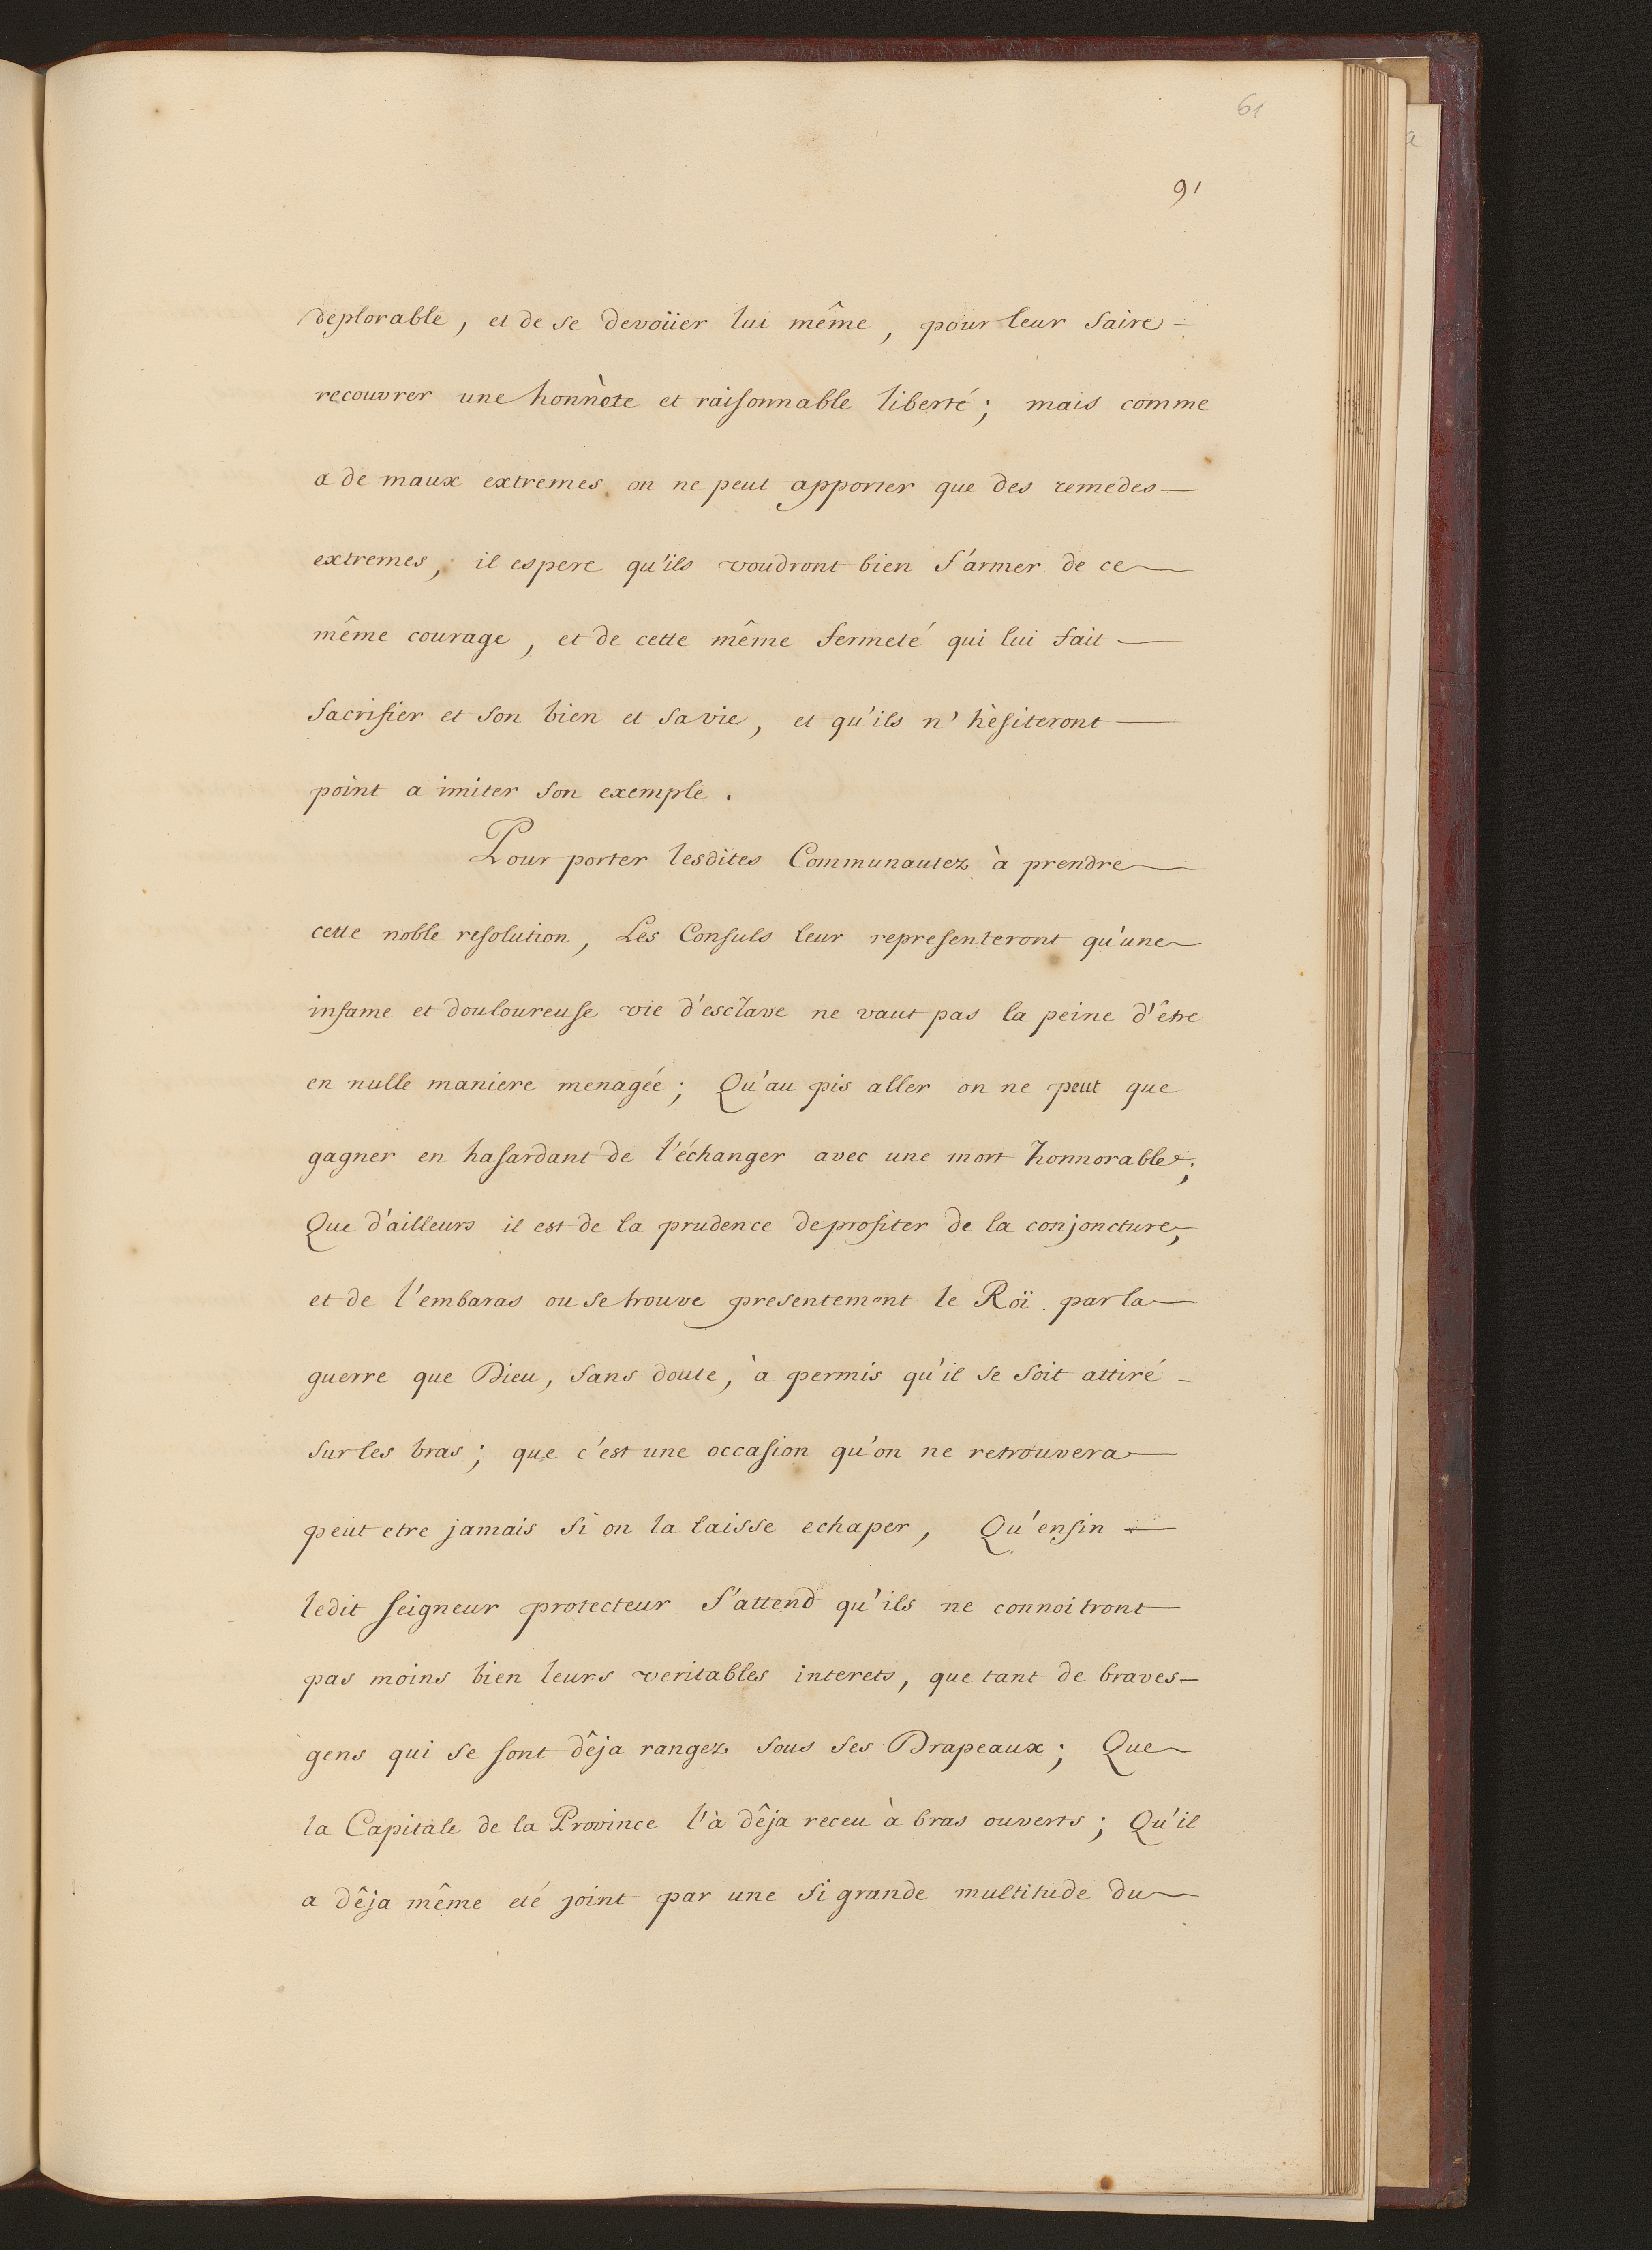 61
91
deplorable, et de se devoüer lui même, pour leur faire
recouvrer une honnète et raisonnable liberté; mais comme
a de maux extremes on ne peut apporter que des remedes
extremes, il espere qu'ils voudront bien s'armer de ce
même courage, et de cette même fermeté qui lui fait
sacrifier et son bien et sa vie, et qu'ils n'hèsiteront
point a imiter son exemple.
Pour porter lesdites Communautez à prendre
cette noble resolution, Les Consuls leur representeront qu'une
infame et douloureuse vie d'esclave ne vaut pas la peine d'être
en nulle maniere menagée; Qu'au pis aller on ne peut que
gagner en hasardant de l'échanger avec une mort honnorable;
Que d'ailleurs il est de la prudence de profiter de la conjoncture,
et de l'embaras ou se trouve presentement le Roï par la
guerre que Dieu, sans doute, à permis qu'il se soit attiré
sur les bras; que c'est une occasion qu'on ne retrouvera
peut etre jamais si on la laisse echaper, Qu'enfin
ledit seigneur protecteur s'attend qu'ils ne connoitront
pas moins bien leurs veritables interets, que tant de braves
gens qui se sont dêja rangez sous ses Drapeaux; Que
la Capitale de la Province l'à dêja receu à bras ouverts; Qu'il
a dêja même eté joint par une si grande multitude du